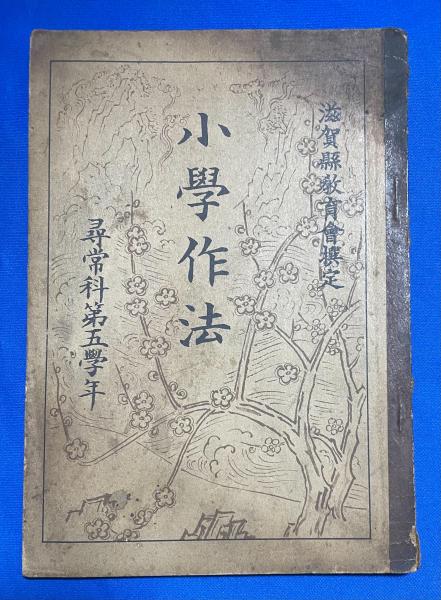 滋賀縣敎育會撰定
小學作法
尋常科第五學年